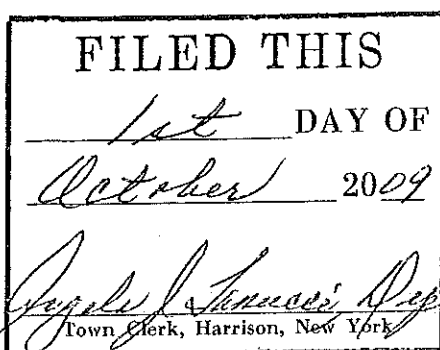 FILED THIS
1st DAY OF
October 2009
J. Dep
Town Clerk, Harrison, New York